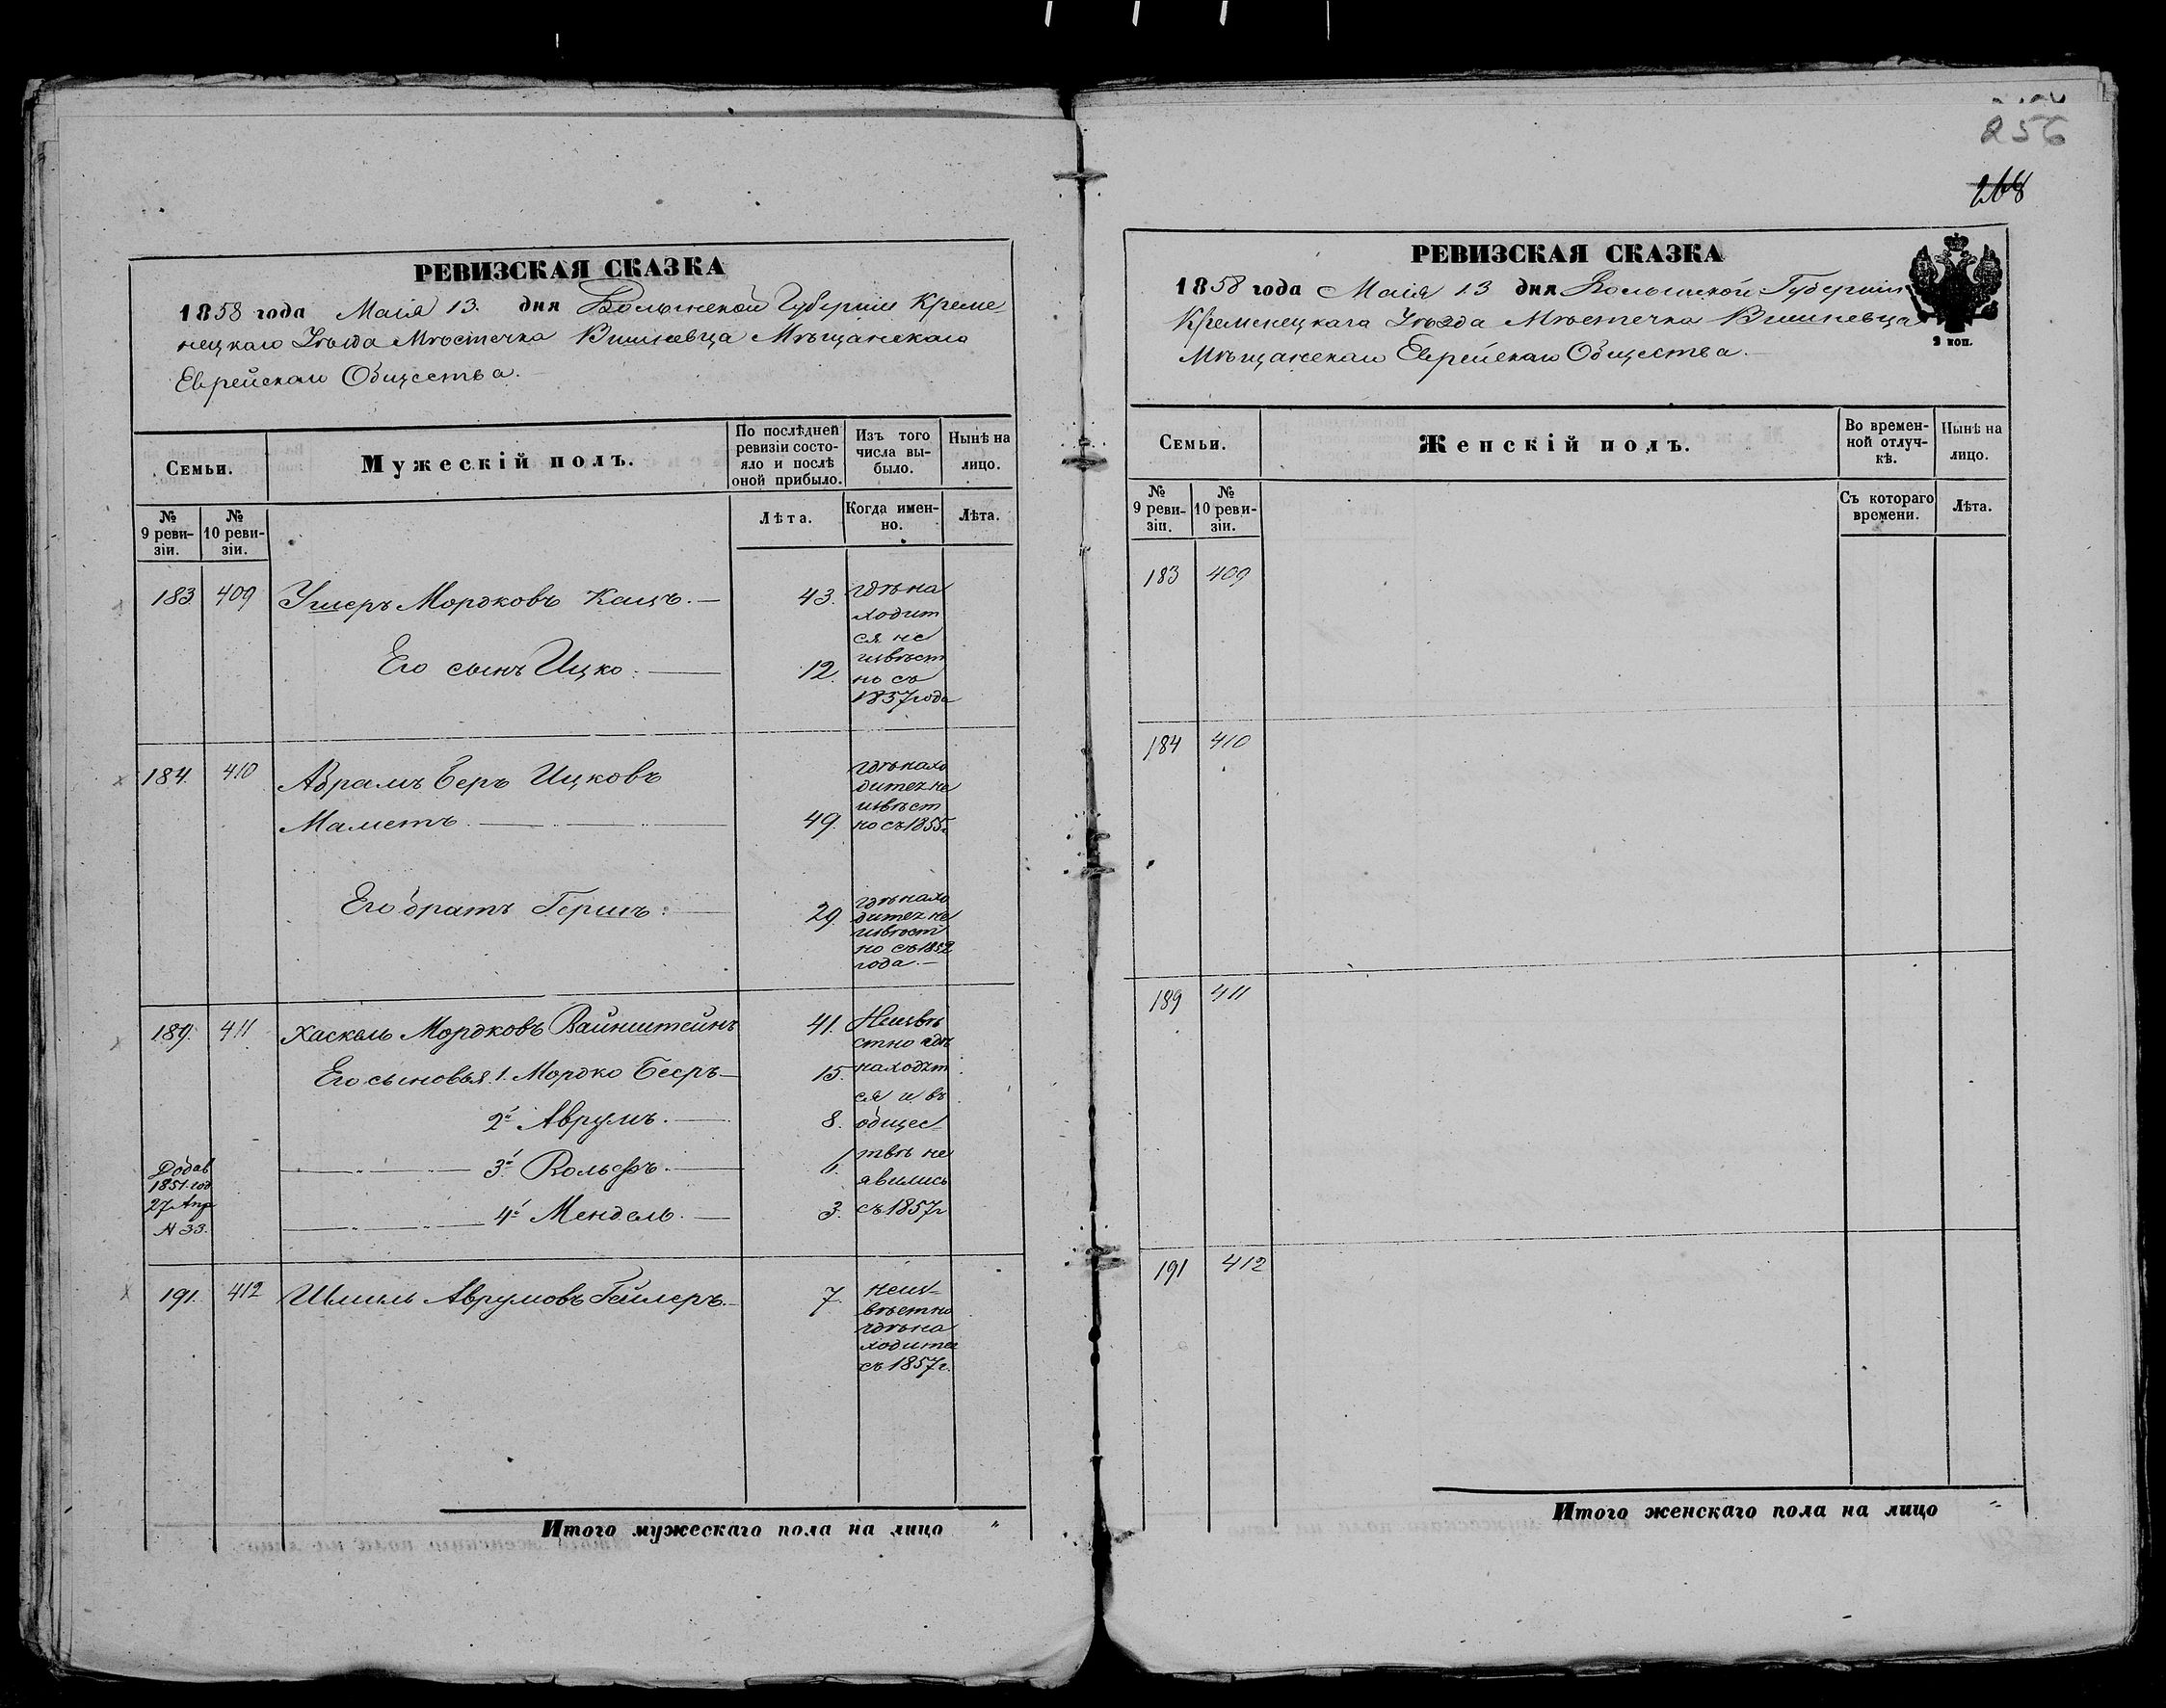 256
268
РЕВИЗСКАЯ СКАЗКА
1858 года Маія 13. дня Волынской Губерніи Креме-
нецкаго Уѣзда Мѣстечка Вишневца Мѣщанскаго
Еврейскаго Общества.
Семьи.
Мужескій полъ.
По послѣдней
ревизіи состо-
яло и послѣ
оной прибыло.
Изъ того
числа вы-
было.
Нынѣ на
лицо.
№
9 реви-
зіи.
№
10 реви-
зіи.
Лѣта.
Когда имен-
но.
Лѣта.
183. 409 Ушеръ Мордковъ Кацъ. — 43.
Его сынъ Ицко. — 12.
гдѣ на
ходит
ся не
извѣст
но съ
1857 года
184. 410 Абрамъ Беръ Ицковъ
Маметъ. — 49.
гдѣ нахо
дится не
извѣст
но съ 1855г.
Его братъ Гершъ: — 29.
гдѣ нахо
дится не
извѣст
но съ 1852
года. —
189. 411 Хаскель Мордковъ Вайнштейнъ 41.
Его сыновья. 1. Мордко Бееръ — 15.
2й Аврумъ. — 8.
3й Вольфъ. —
4й Мендель. — 3.
Неизвѣ
стно гдѣ
находят
ся и въ
общес-
твѣ не
явились
съ 1857г
Добав
1851. год
27 Апр
N 33.
191. 412 Шмиль Аврумовъ Гейлеръ. — 7.
неиз-
вѣстно
гдѣ на
ходится
съ 1857г.
Итого мужескаго пола на лицо "
РЕВИЗСКАЯ СКАЗКА
1858 года Маія 13 дня Волынской Губерніи
Кременецкаго Уѣзда Мѣстечка Вишневца
Мѣщанскаго Еврейскаго Общества.
2 коп.
Семьи.
Женскій полъ.
Во времен-
ной отлуч-
кѣ.
Нынѣ на
лицо.
№
9 реви-
зіи.
№
10 реви-
зіи.
Съ котораго
времени.
Лѣта.
183 409
184 410
189 411
191 412
Итого женскаго пола на лицо "